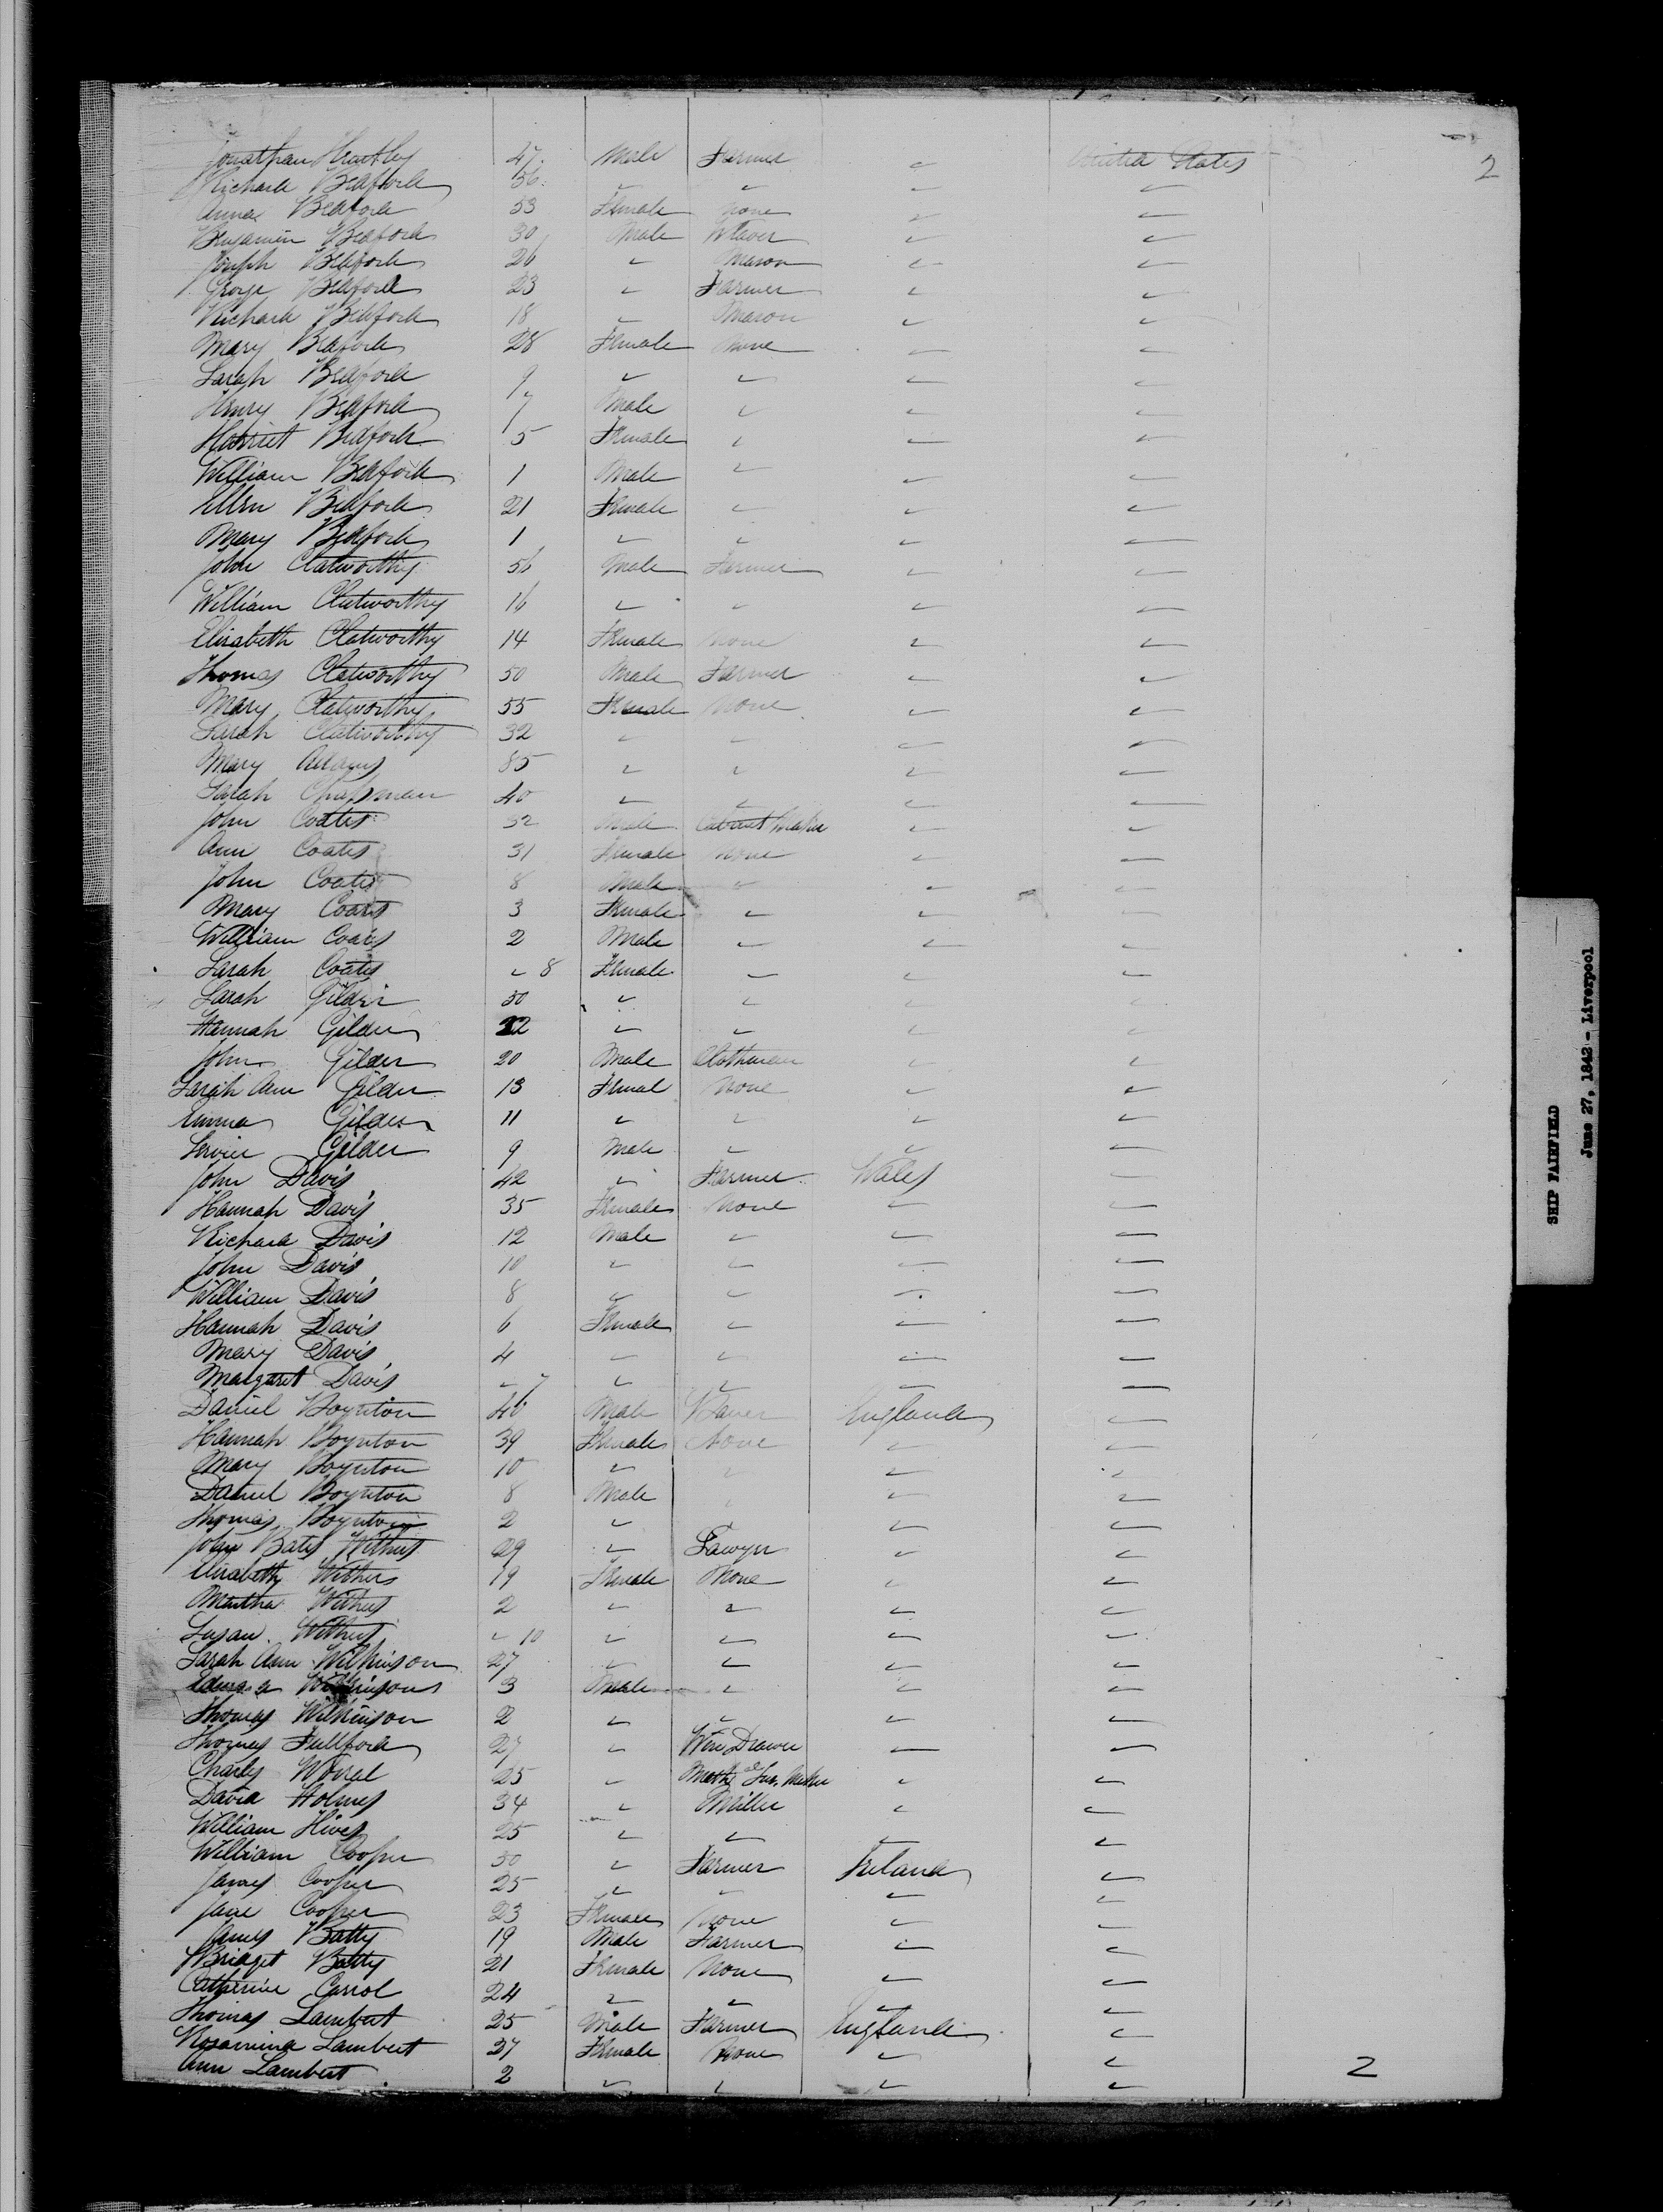 Jonathan Heatley 47 Male Farmer " United States 2
Richard Bedford 56 " " " "
Anna Bedford 53 Female None " "
Benjamin Bedford 30 Male Weaver " "
Joseph Bedford 26 " Mason " "
George Bedford 23 " Farmer " "
Richard Bedford 18 " Mason " "
Mary Bedford 28 Female None " "
Sarah Bedford 9 " " " "
Henry Bedford 7 Male " " "
Harriet Bedford 5 Female " " "
William Bedford 1 Male " " "
Ellen Bedford 21 Female " " "
Mary Bedford 1 " " " "
John Clatworthy 56 Male Farmer " "
William Clatworthy 16 " " " "
Elizabeth Clatworthy 14 Female None " "
Thomas Clatworthy 50 Male Farmer " "
Mary Clatworthy 55 Female None " "
Sarah Clatworthy 32 " " " "
Mary Adams 85 " " " "
Sarah Chapman 40 " " " "
John Coates 32 Male Cabinet Maker " "
Ann Coates 31 Female None " "
John Coates 8 Male " " "
Mary Coates 3 Female " " "
William Coates 2 Male " " "
Sarah Coates " 8 Female " " "
Sarah Gilder 50 " " " "
Hannah Gilder 22 " " " "
John Gilder 20 Male Clothman " "
Sarah Ann Gilder 13 Femal None " "
Emma Gilder 11 " " " "
Gilder 9 Male " " "
John Davis 42 " Farmer Wales "
Hannah Davis 35 Female None " "
Richard Davis 12 Male " " "
John Davis 10 " " " "
William Davis 8 " " " "
Hannah Davis 6 Female " " "
Mary Davis 4 " " " "
Margaret Davis " 7 " " " "
Daniel Boynton 46 Male England "
Hannah Boynton 39 Female None " "
Mary Boynton 10 " " " "
Daniel Boynton 8 Male " " "
Thomas Boynton 2 " " " "
John Bates Withers 29 " Sawyer " "
Elizabeth Withers 19 Female None " "
Martha Withers 2 " " " "
Susan Withers " 10 " " " "
Sarah Ann Wilkinson 27 " " " "
Wilkinson 3 Male " " "
Thomas Wilkinson 2 " " " "
Thomas Fullford 27 " Wire Drawer " "
Charles Worral 25 " Math Ins. Maker " "
David Holmes 34 " Miller " "
William Hives 25 " " " "
William Cooper 30 " Farmer Ireland "
James Cooper 25 " " " "
Jane Cooper 23 Female None " "
James Batty 19 Male Farmer " "
Bridget Batty 21 Female None " "
Catherine Carrol 24 " " " "
Thomas Lambert 25 Male Farmer England "
Rosamina Lambert 37 Female None " "
Ann Lambert 2 " " " " 2
SHIP FAIRFIELD
June 27, 1842 - Liverpool